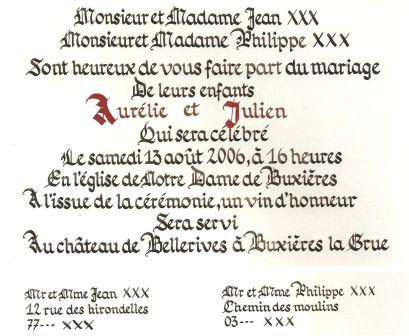 Monsieur et Madame Jean XXX
Monsieur et Madame Philippe XXX
Sont heureux de vous faire part du mariage
De leurs enfants
Aurélie et Julien
Qui sera célébré
Le samedi 13 août 2006, à 16 heures
En l'église de Notre Dame de Buxières
A l'issue de la cérémonie, un vin d'honneur
Sera servi
Au château de Bellerives à Buxières la Grue
Mr et Mme Jean XXX
12 rue des hirondelles
77--- XXX
Mr et Mme Philippe XXX
Chemin des moulins
03--- XXX